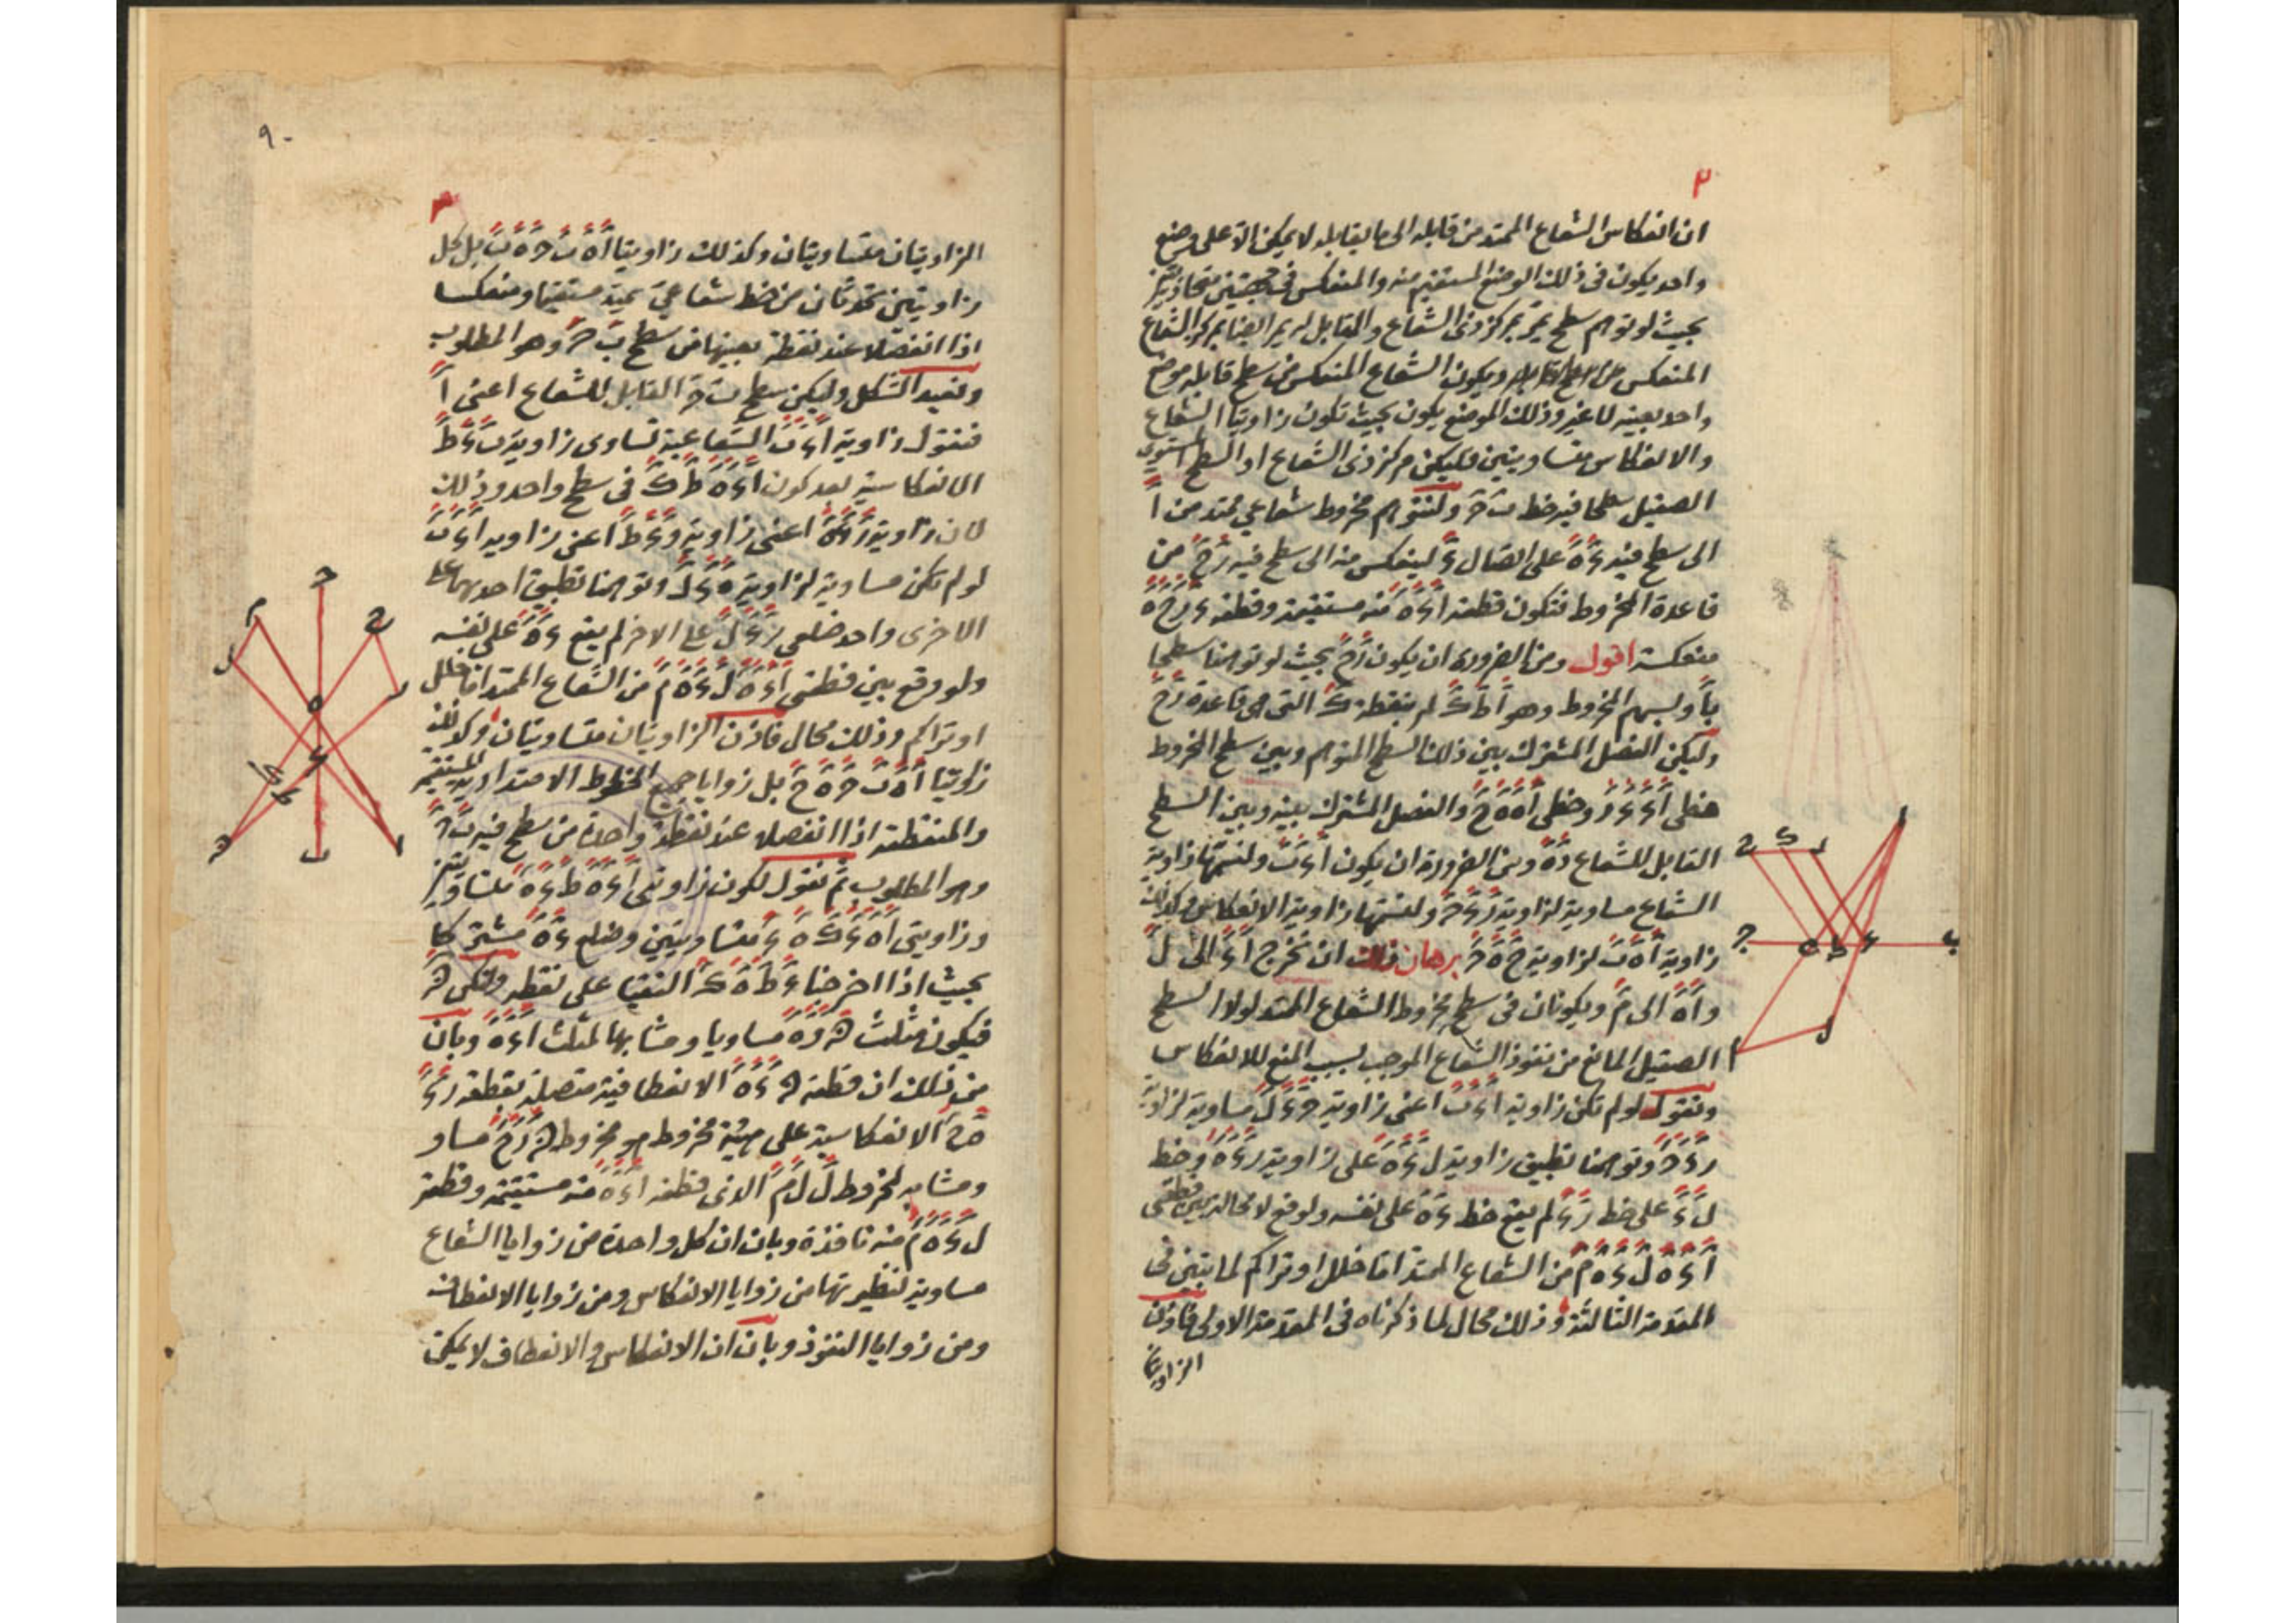 ٢
ان انعكاس الشعاع الممتد من قابله الى ما يقابله لا يمكن الا على وضع
واحد يكون فى ذلك الوضع المستقيم منه والمنعكس فى جهتين متحاذيتين
بحيث لو توهم سطح يمر بمركز ذى الشعاع والمقابل له يمر ايضا بمركز الشعاع
المنعكس عن السطح القابل ويكون الشعاع المنعكس من سطح قابله موضع
واحد بعينه لا غير وذلك الموضع يكون بحيث تكون زاويتا الشعاع
والانعكاس متساويتين فليكن مركز ذى الشعاع ا والسطح المستوى
الصقيل سطحا فيه خط ب ج ولنتوهم مخروط شعاعي يمتد من ا
الى سطح فيه ء ه على اتصال ء لينعكس منه الى سطح فيه ر ح من
قاعدة المخروط فتكون قطعة ا ء ه منه مستقيمة وقطعة ء ر ح ه
منعكسة اقول ومن الضرورة ان يكون ر ح بحيث لو توهمنا سطحا
با وبسهم المخروط وهو ا ط ك لم بنقطة ك التى هى قاعدة ر ح
وليكن الفصل المشترك بين ذلك السطح المتوهم وبين سطح المخروط
خطى ا ء ء ر وخطى ا ه ه ح والفصل المشترك بينه وبين السطح
القابل للشعاع ء ه ومن الضرورة ان يكون ا ء ب ولنسمها زاوية
الشعاع مساوية لزاوية ر ء ج ولنسمها زاوية الانعكاس وكذلك
زاوية ا ه ب لزاوية ح ه ج برهان ذلك ان نخرج ا ء الى ل
وا ه الى م ويكونان فى سطح مخروط الشعاع الممتد لولا السطح
الصقيل المانع من نفوذ الشعاع الموجب بسبب المنع للانعكاس
ونقول لو لم تكن زاوية ا ء ب اعنى زاوية ج ء ل مساوية لزاوية
ر ء ج وتوهمنا تطبيق زاوية ل ء ه على زاوية ر ء ه وخط
ل ء على خط ر ء لم يقع خط ء ه على نفسه ولوقع لا محالة بين قطعتى
ا ء ه ل ء ه م من الشعاع الممتد اما خلل او تراكم لما تبين فى
المقدمة الثالثة وذلك محال لما ذكرناه فى المقدمة الاولى فاذن
الزاويتان
ا
ح ك ر
ج ه ط ء ب
ل
م
٩٠
٣
الزاويتان متساويتان وكذلك زاويتا ا ه ب ح ه ب بل كل
زاويتين تحدثان من خط شعاعي يمتد مستقيما ومنعكسا
اذا انفصلا عند نقطة بعينها من سطح ب ج وهو المطلوب
ونعيد الشكل وليكن سطح ب ج القابل للشعاع اعنى ا
فنقول زاوية ا ء ب الشعاعية تساوى زاوية ب ء ط
الانعكاسية بعد كون ا ء ه ط ك فى سطح واحد وذلك
لان زاوية ر ء ه اعنى زاوية و ء ط اعنى زاوية ا ء ب
لو لم تكن مساوية لزاوية ه ء ل وتوهمنا تطبيق احديهما على
الاخرى واحد ضلعي ر ء ل على الاخر لم يقع ء ه على نفسه
ولو وقع بين قطعتى ا ء ه ل ء ه م من الشعاع الممتد اما خلل
او تراكم وذلك محال فاذن الزاويتان متساويتان وكذلك
زاويتا ا ه ب ج ه ح بل زوايا جميع الخطوط الامتدادية المستقيمة
والمنعطفة اذا انفصلا عند نقطة واحدة من سطح فيه ب ج
وهو المطلوب ثم نقول لكون زاويتى ا ء ه ط ء ه متساويتين
وزاويتى ا ه ء ك ه ء متساويتين وضلع ء ه مشتركا
بحيث اذا اخرجنا ء ط ه ك التقيا على نقطة ولتكن ق
فيكون مثلث ق ء ه مساويا ومشابها لمثلث ا ء ه وبان
من ذلك ان قطعة ق ء ه الانعطافية متصلة بقطعة ر ء
ه ح الانعكاسية على هيئة مخروط هو مخروط ق ر ح مساو
ومشابه لمخروط ا ل م الذى قطعة ا ء ه منه مستقيمة وقطعة
ل ء ه م منه نافذة وبان ان كل واحدة من زوايا الشعاع
مساوية لنظيرتها من زوايا الانعكاس ومن زوايا الانعطاف
ومن زوايا النفوذ وبان ان الانعكاس والانعطاف لا يمكن
ج
م ح
ل ر
ه
ء
ك ط
ق ب ا